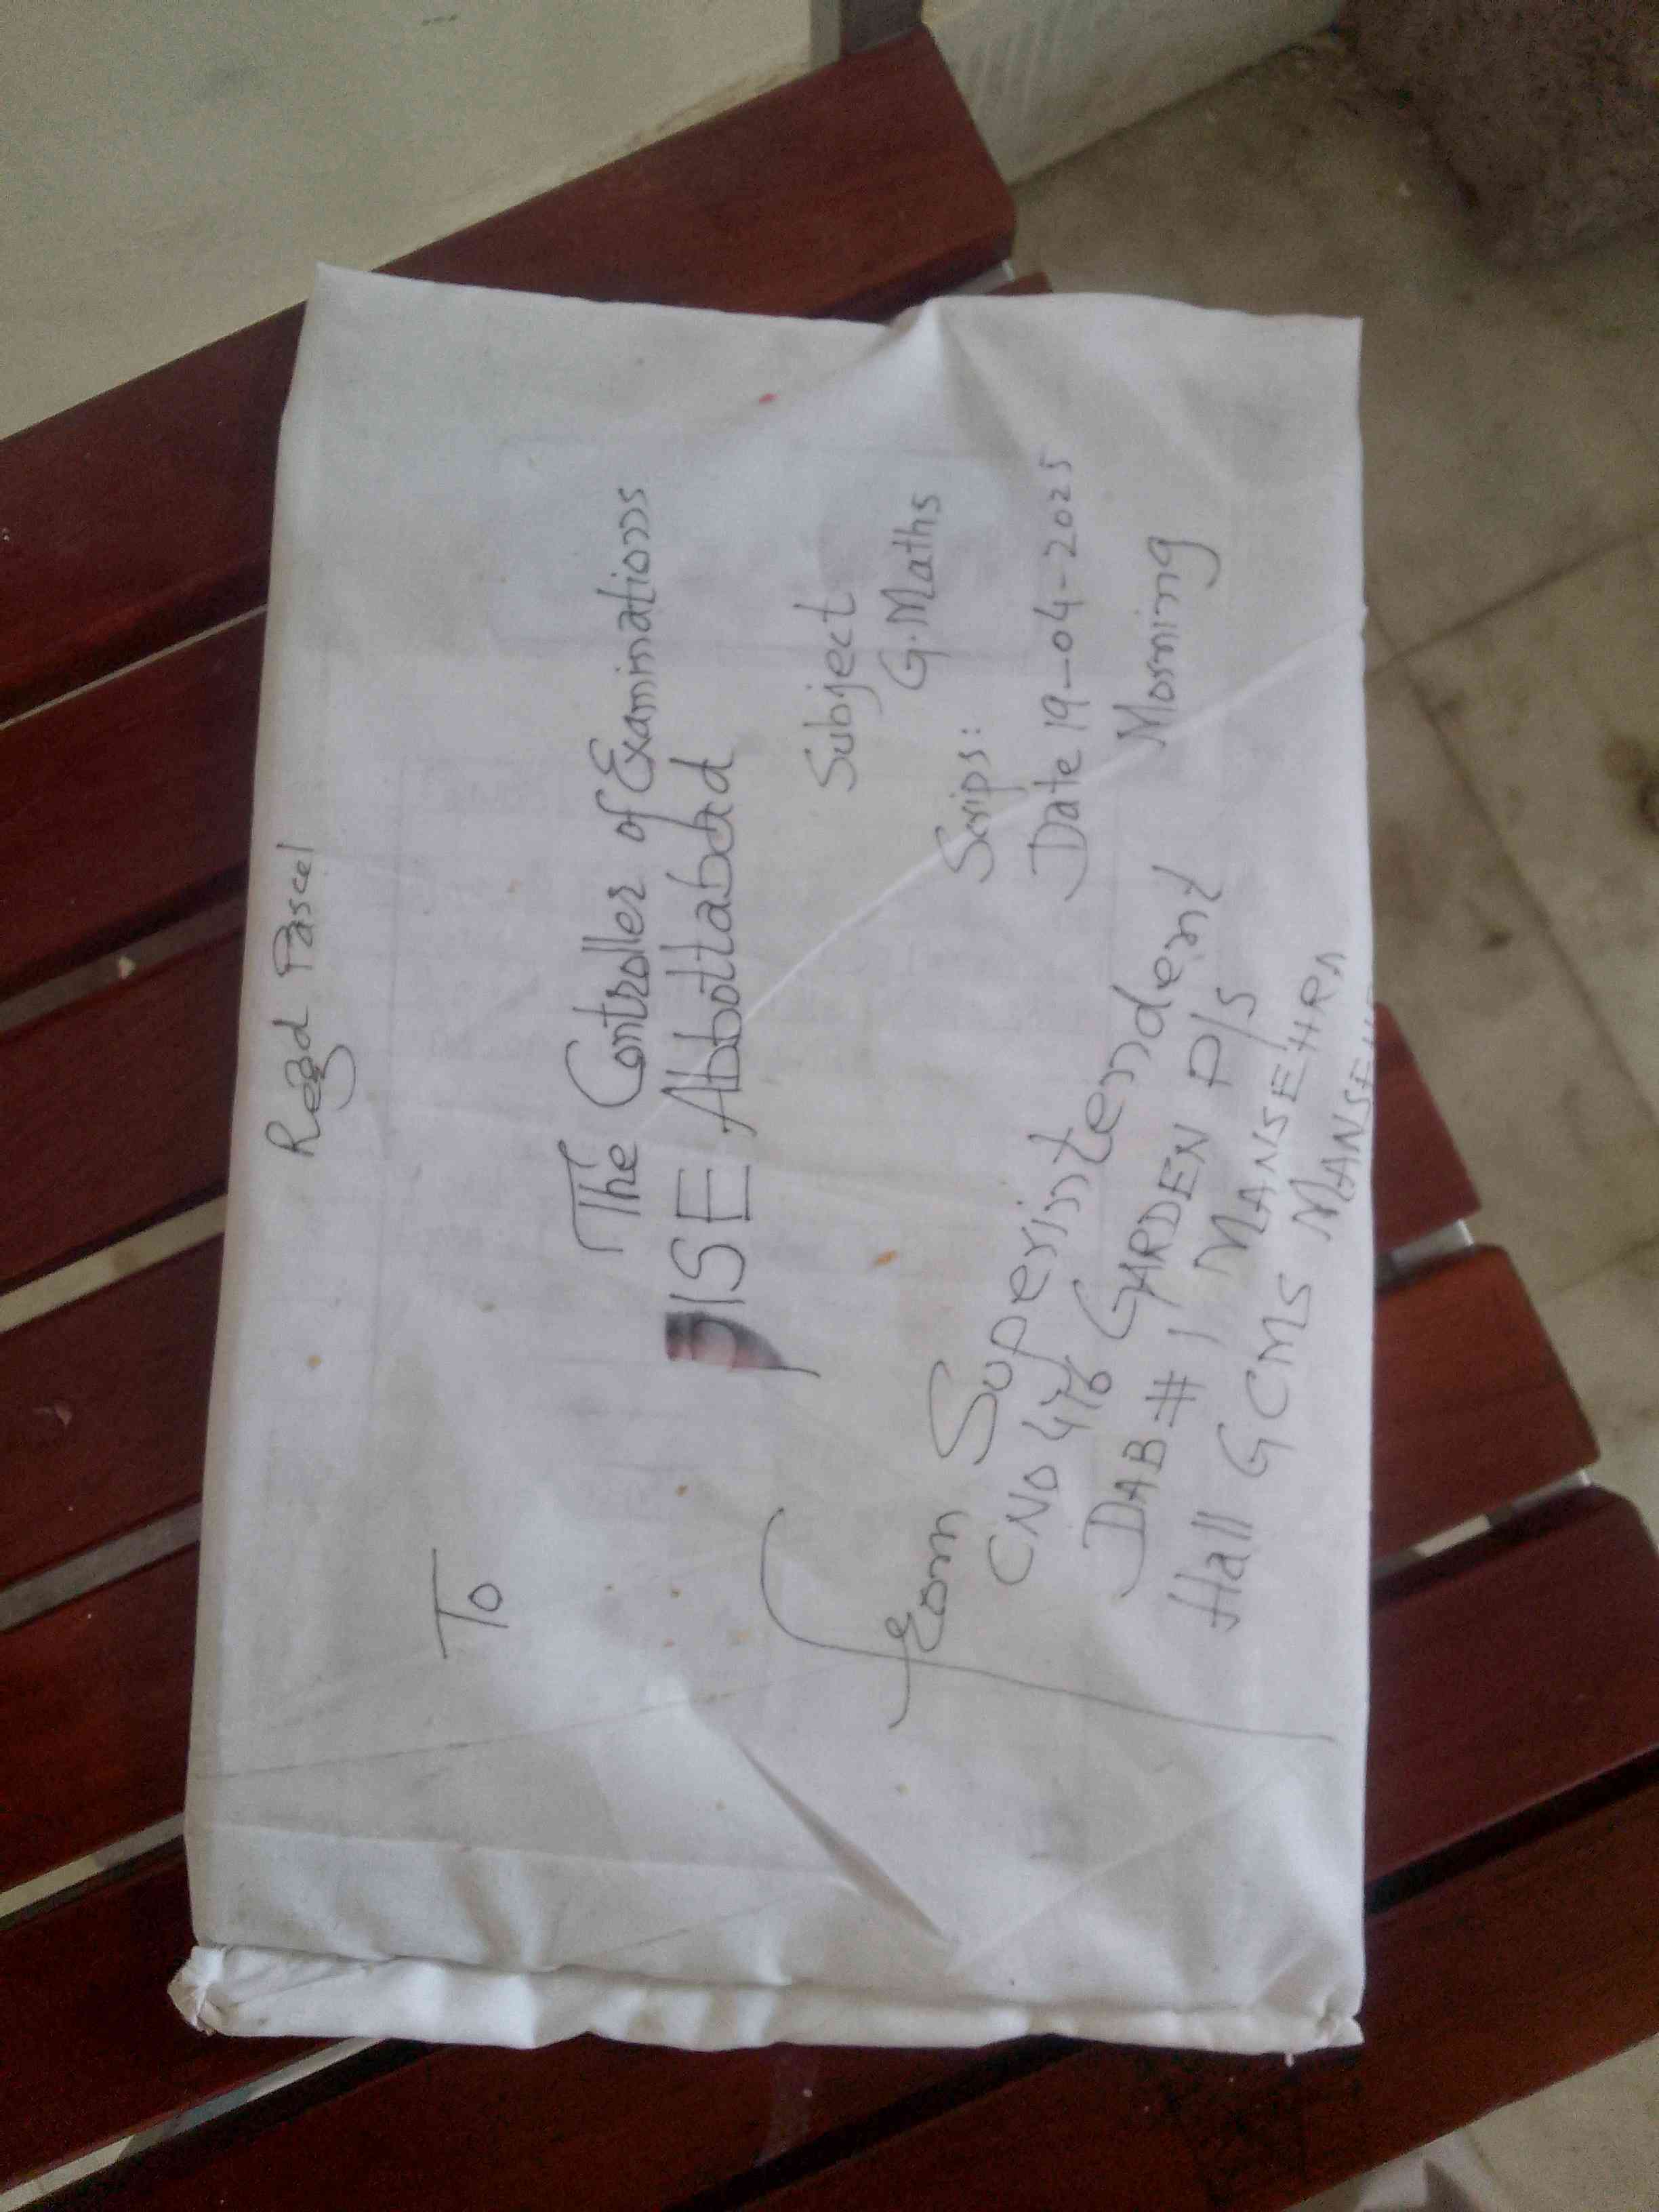 Regd Parcel
To
The Controller of Examinations
ISE Abbottabad
Subject
G.Maths
Scrips:
Date 19-04-2025
Morning
from Superintendent
CNo 476 GARDEN P/S
DAB # 1 MANSEHRA
Hall GCMS MANSEHRA